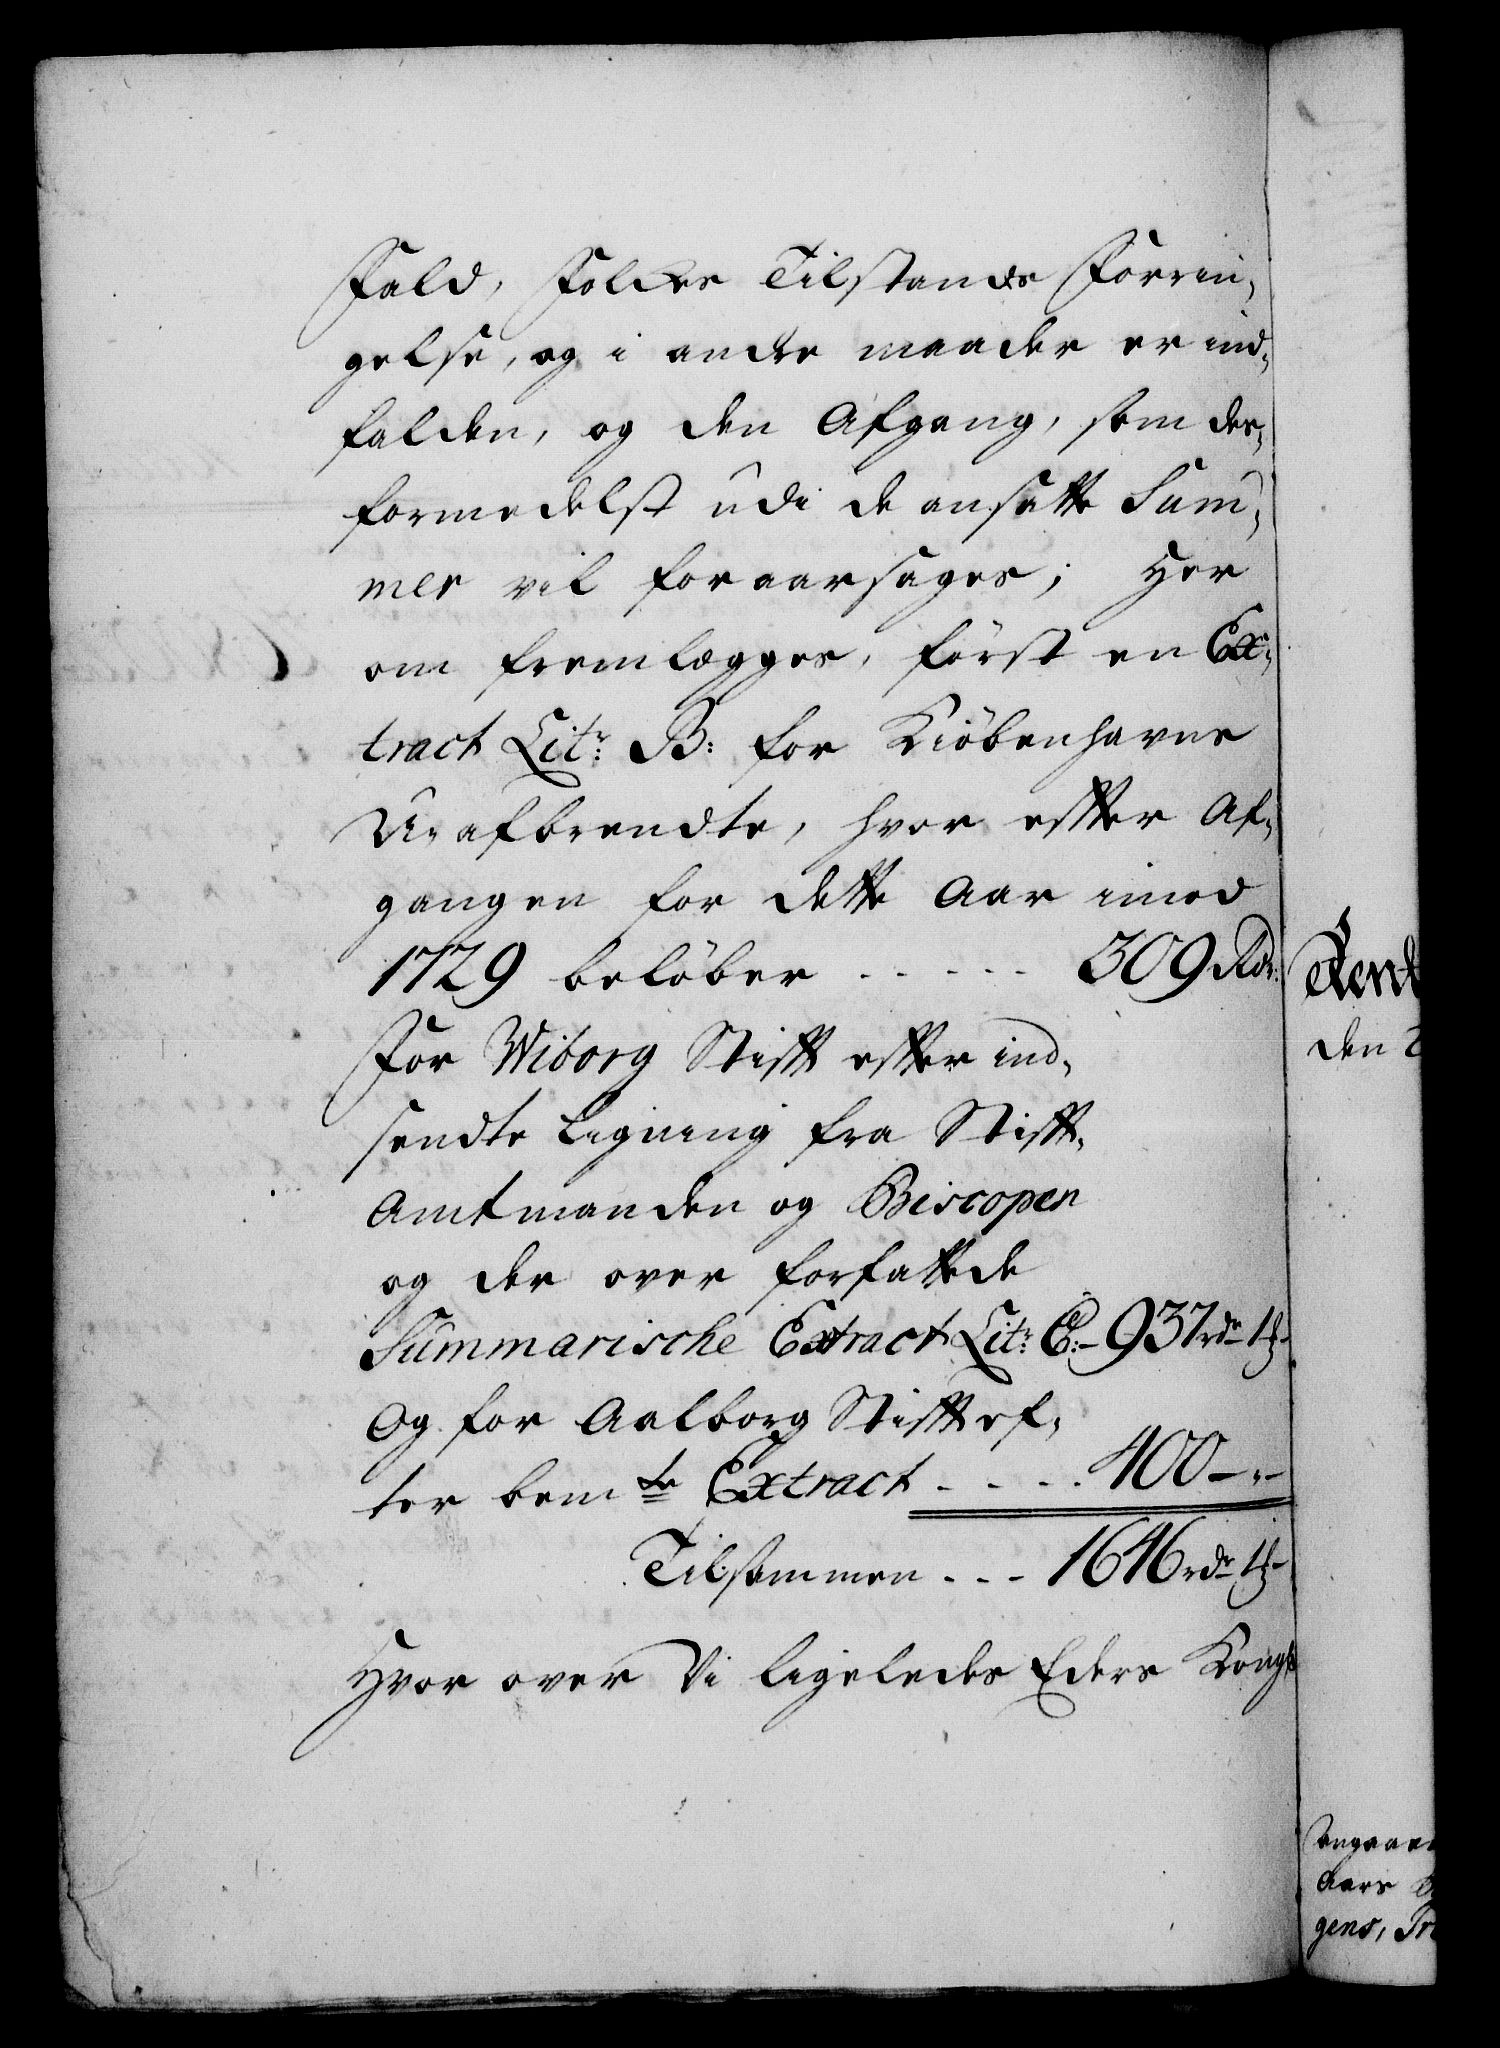 Fald, Folkes Tilstands Forrin-
gelse, og i andre maader er ind-
falden, og den Afgang, som der-
formedelst udi de ansatte Sum-
mer vil foraarsages; Her
om fremlegges, först en Ex-
tract Litr: B: for Kiöbenhavns
U-afbrendte, hvor efter Af-
gangen for dette Aar imod
1729 belöber - - - - - 309 Rdr:
For Wiborg Stift efter ind-
sendte Ligning fra Stift-
Amtmanden og Biscopen
og der over forfattede
Summarische Extract Litr: C:- 937 rdr 1 ß
Og for Aalborg Stift ef-
ter bemte Extract - - - - 400 - " -
Tilsammen - - - 1646 rdr 1 ß
Hvor over Vi ligeledes Eders Kongl
den
Angaaen
Aars
gens, Tr